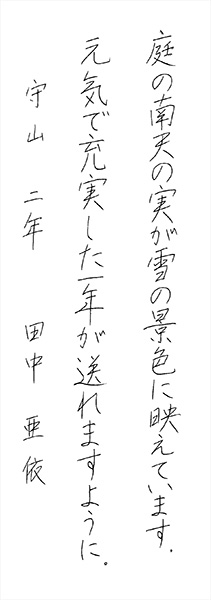 庭の南天の実が雪の景色に映えています。
元気で充実した一年が送れますように。
守山 二年 田中 亜依